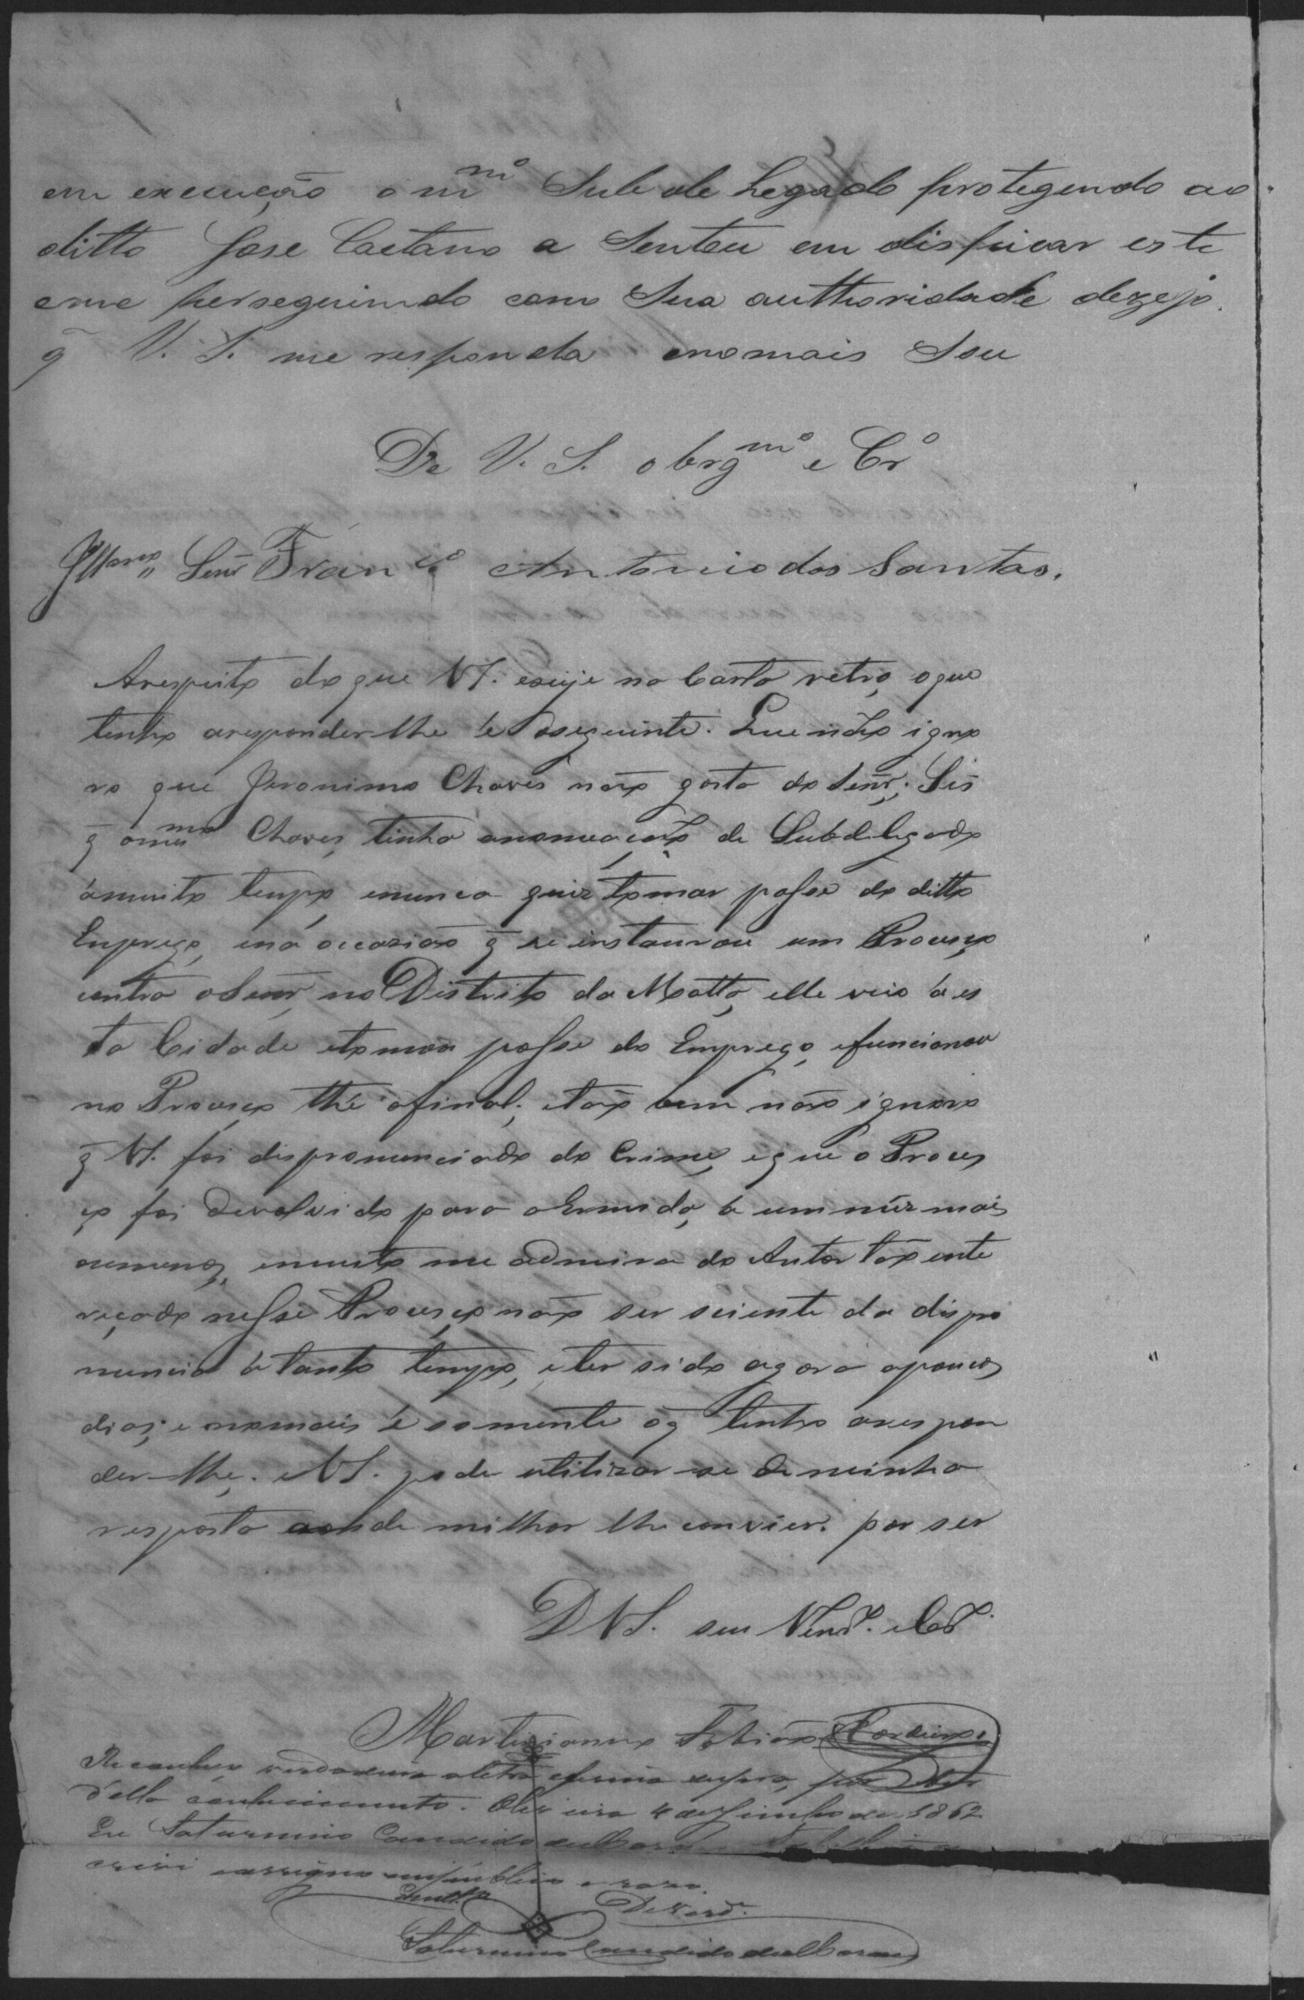 em execução o mmo Subdelhegado protegendo ao
ditto Jose Caetano a Sentou em disfricar este
eme perseguindo com Sua authoridade dezejo
q̃ V. S. me responda enomais Sou
De V. S. obrgmo e Cro
Illmo Senr Franco Antonio dos Santos.
Arespeito do que VS. exije na Carta retro, oque
tenho aresponder-lhe é oseguinte. Que não igno
ro que Jeronimo Chaves não gosta do Senr;. Sei
q̃ ommo Chaves, tinha anomeação de Subdelegado
amuito tempo enunca quiz tomar posse do ditto
Emprego, ena occasião q̃ se instaurou um Processo
contra oSenr, no Distrito da Matto, elle veio á es
ta Cidade etomou posse do Emprego, efuncionou
no Processo thé ofinal; etão bem não ignoro
q̃ VS. foi dispronunciado do Crime, eque o Proces
so foi devolvido para aErmida, a um mez mais
oumenos, emuito me admira do Autor tão inte
reçado nesse Processo não ser sciente da dispro
nuncia a tanto tempo, eter sido agora apoucos
dias; e nomais é somente oq̃ tenho arespon
der-lhe. eVS. pode utilizar-se de minha
resposta aonde milhor lhe convier. por ser
D VS. seu Vendor. eCrdo.
Martiniano Fabião Cordeiro
Reconheço verdadeira aletra efirma supra, por ter
d'ella conhecimento. Oliveira 4 deJunho de 1862
Eu Saturnino Candido de
crevi eassigno empublico e raso.
Saturnino Candido de